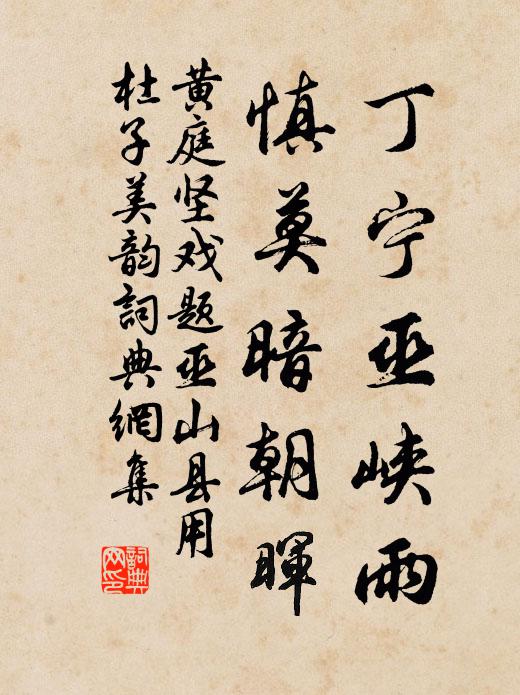 丁宁巫峡雨
慎莫暗朝暉
黄庭坚戏题巫山县用
杜子美韵詞典網集
詞典
网印